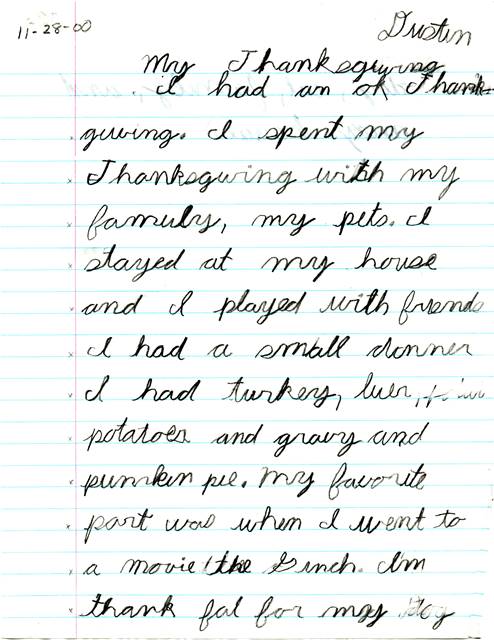 11-28-00
Dustin
My Thanksgiving
I had an ok Thank-
giving. I spent my
Thanksgiving with my
famuly, my pets. I
stayed at my house
and I played with friends
I had a small donner
I had turkey, luer,
potatoes and gravy and
pumken pie. My favorite
part was when I went to
a movie the Grinch. I'm
thank fal for my dog